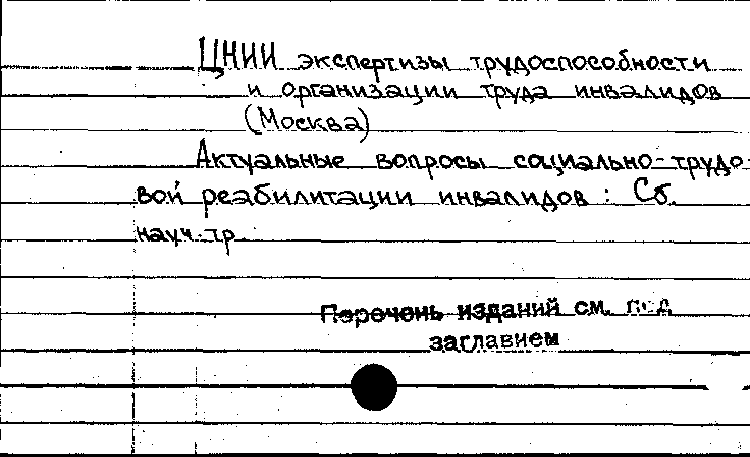 ЦНИИ экспертизы трудоспособности
и организации труда инвалидов
(Москва)
Актуальные вопросы социально-трудо-
вой реабилитации инвалидов : Сб.
науч. тр
Перечень изданий см. под
заглавием